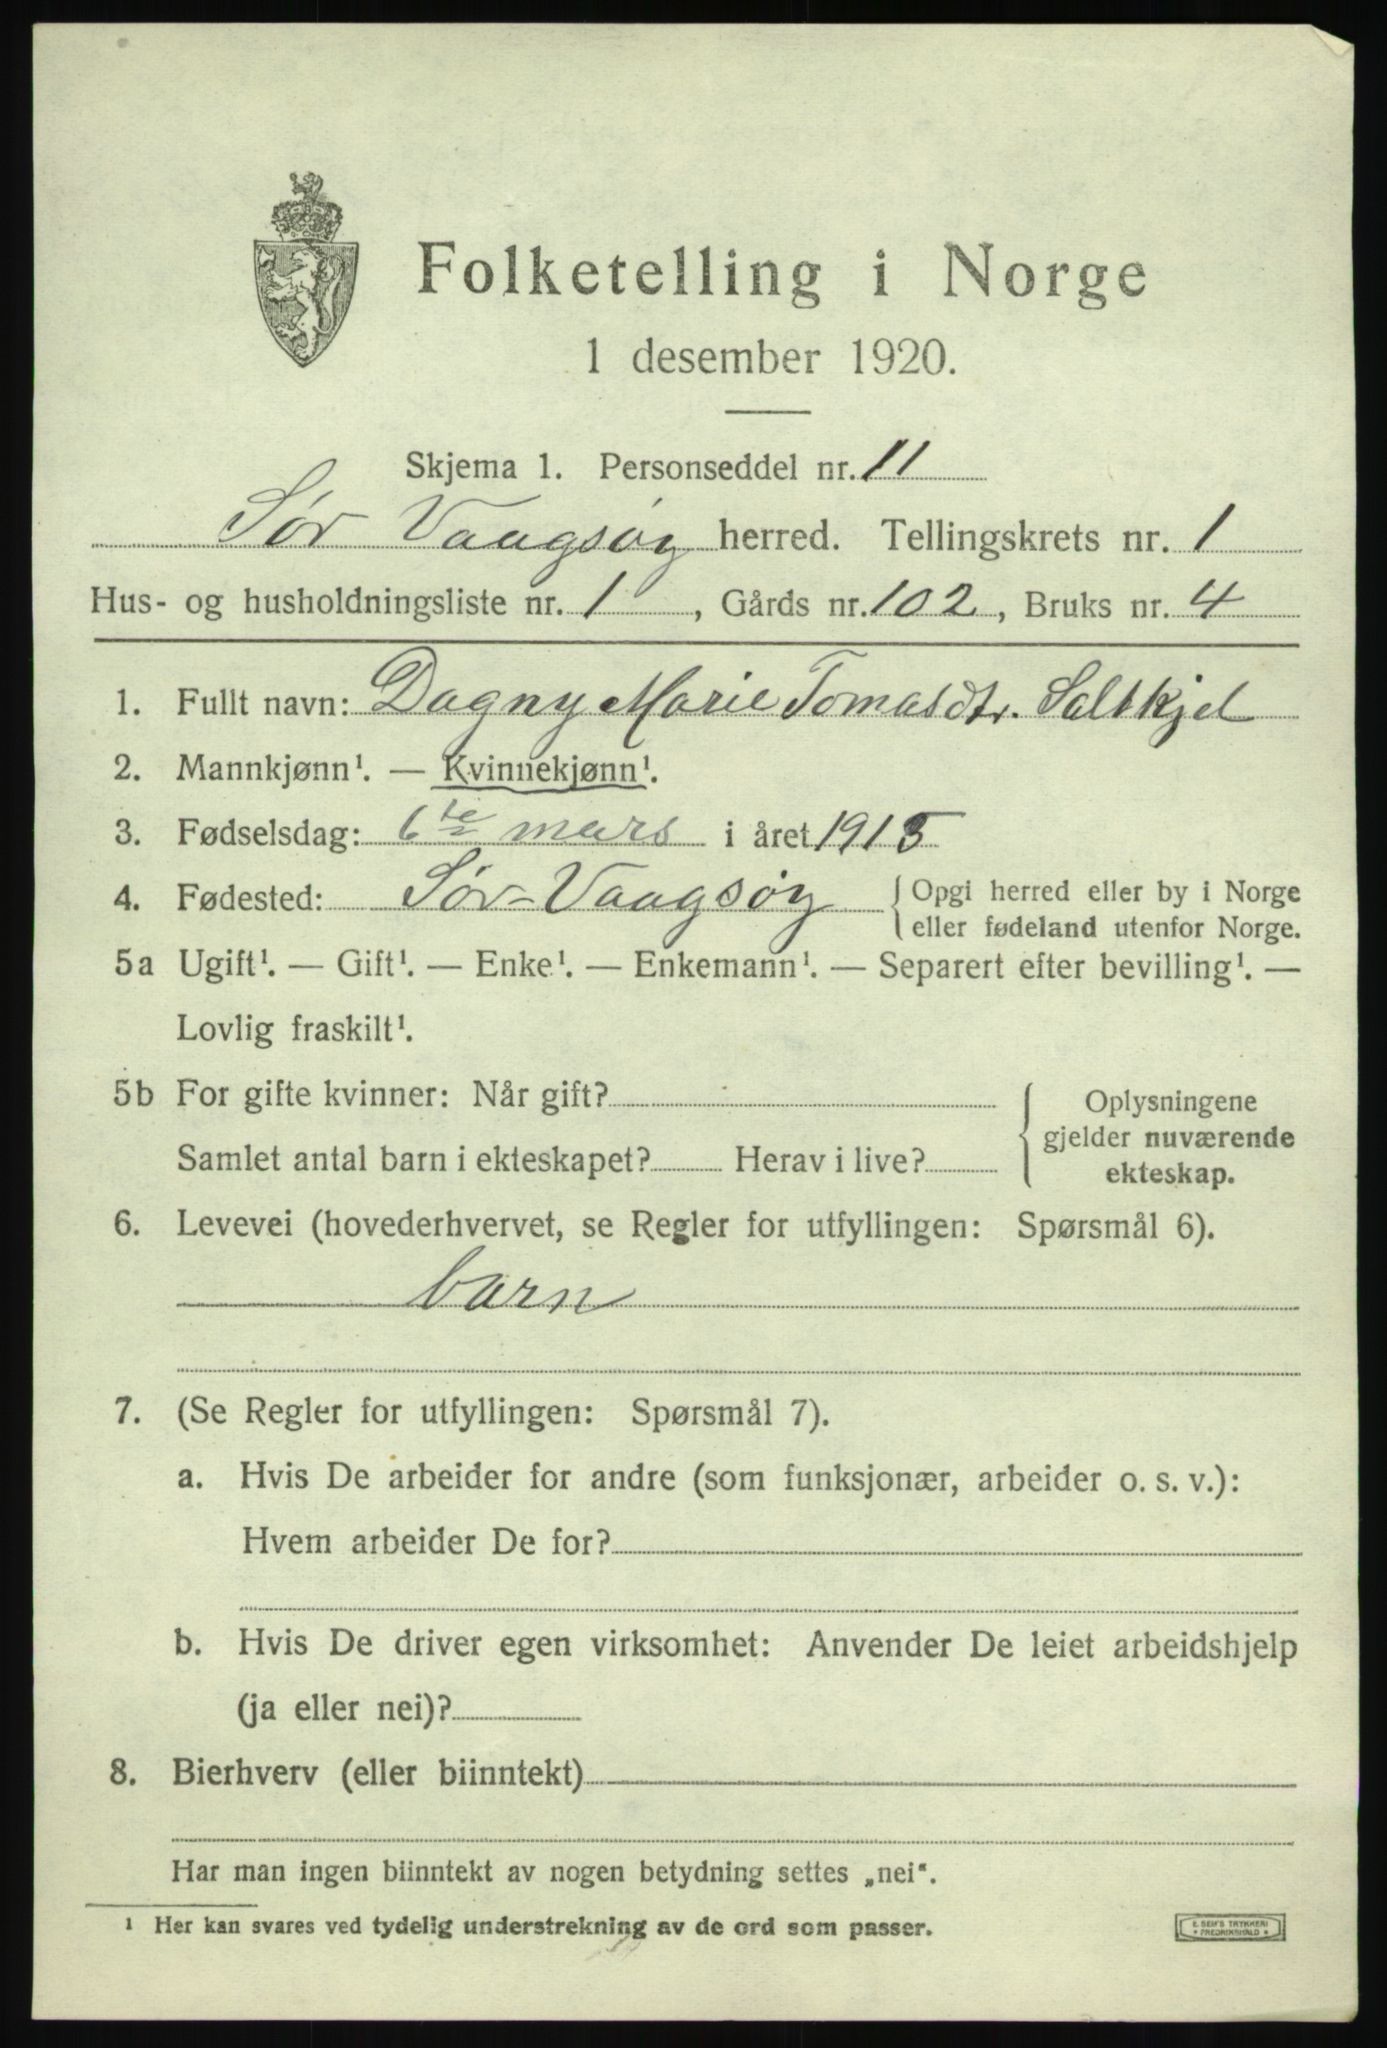 Folketelling i Norge
1 desember 1920.
Skjema 1. Personseddel nr. 11
Sør Vaagsøy herred. Tellingskrets nr. 1
Hus- og husholdningsliste nr. 1, Gårds nr. 102, Bruks nr. 4
1. Fullt navn: Dagny Marie Tomasdtr. Saltkjel
2. Mannkjønn¹. — Kvinnekjønn¹.
3. Fødselsdag: 6te mars i året 1915
4. Fødested: Sør-Vaagsøy { Opgi herred eller by i Norge
eller fødeland utenfor Norge.
5a Ugift¹. — Gift¹. — Enke¹. — Enkemann¹. — Separert efter bevilling¹. —
Lovlig fraskilt¹.
5b For gifte kvinner: Når gift?
Samlet antal barn i ekteskapet? Herav i live?
{ Oplysningene
gjelder nuværende
ekteskap.
6. Levevei (hovederhvervet, se Regler for utfyllingen: Spørsmål 6).
barn
7. (Se Regler for utfyllingen: Spørsmål 7).
a. Hvis De arbeider for andre (som funksjonær, arbeider o. s. v.):
Hvem arbeider De for?
b. Hvis De driver egen virksomhet: Anvender De leiet arbeidshjelp
(ja eller nei)?
8. Bierhverv (eller biinntekt)
Har man ingen biinntekt av nogen betydning settes „nei“.
¹ Her kan svares ved tydelig understrekning av de ord som passer.
E. SEM'S TRYKKERI
* FREDRIKSHALD *